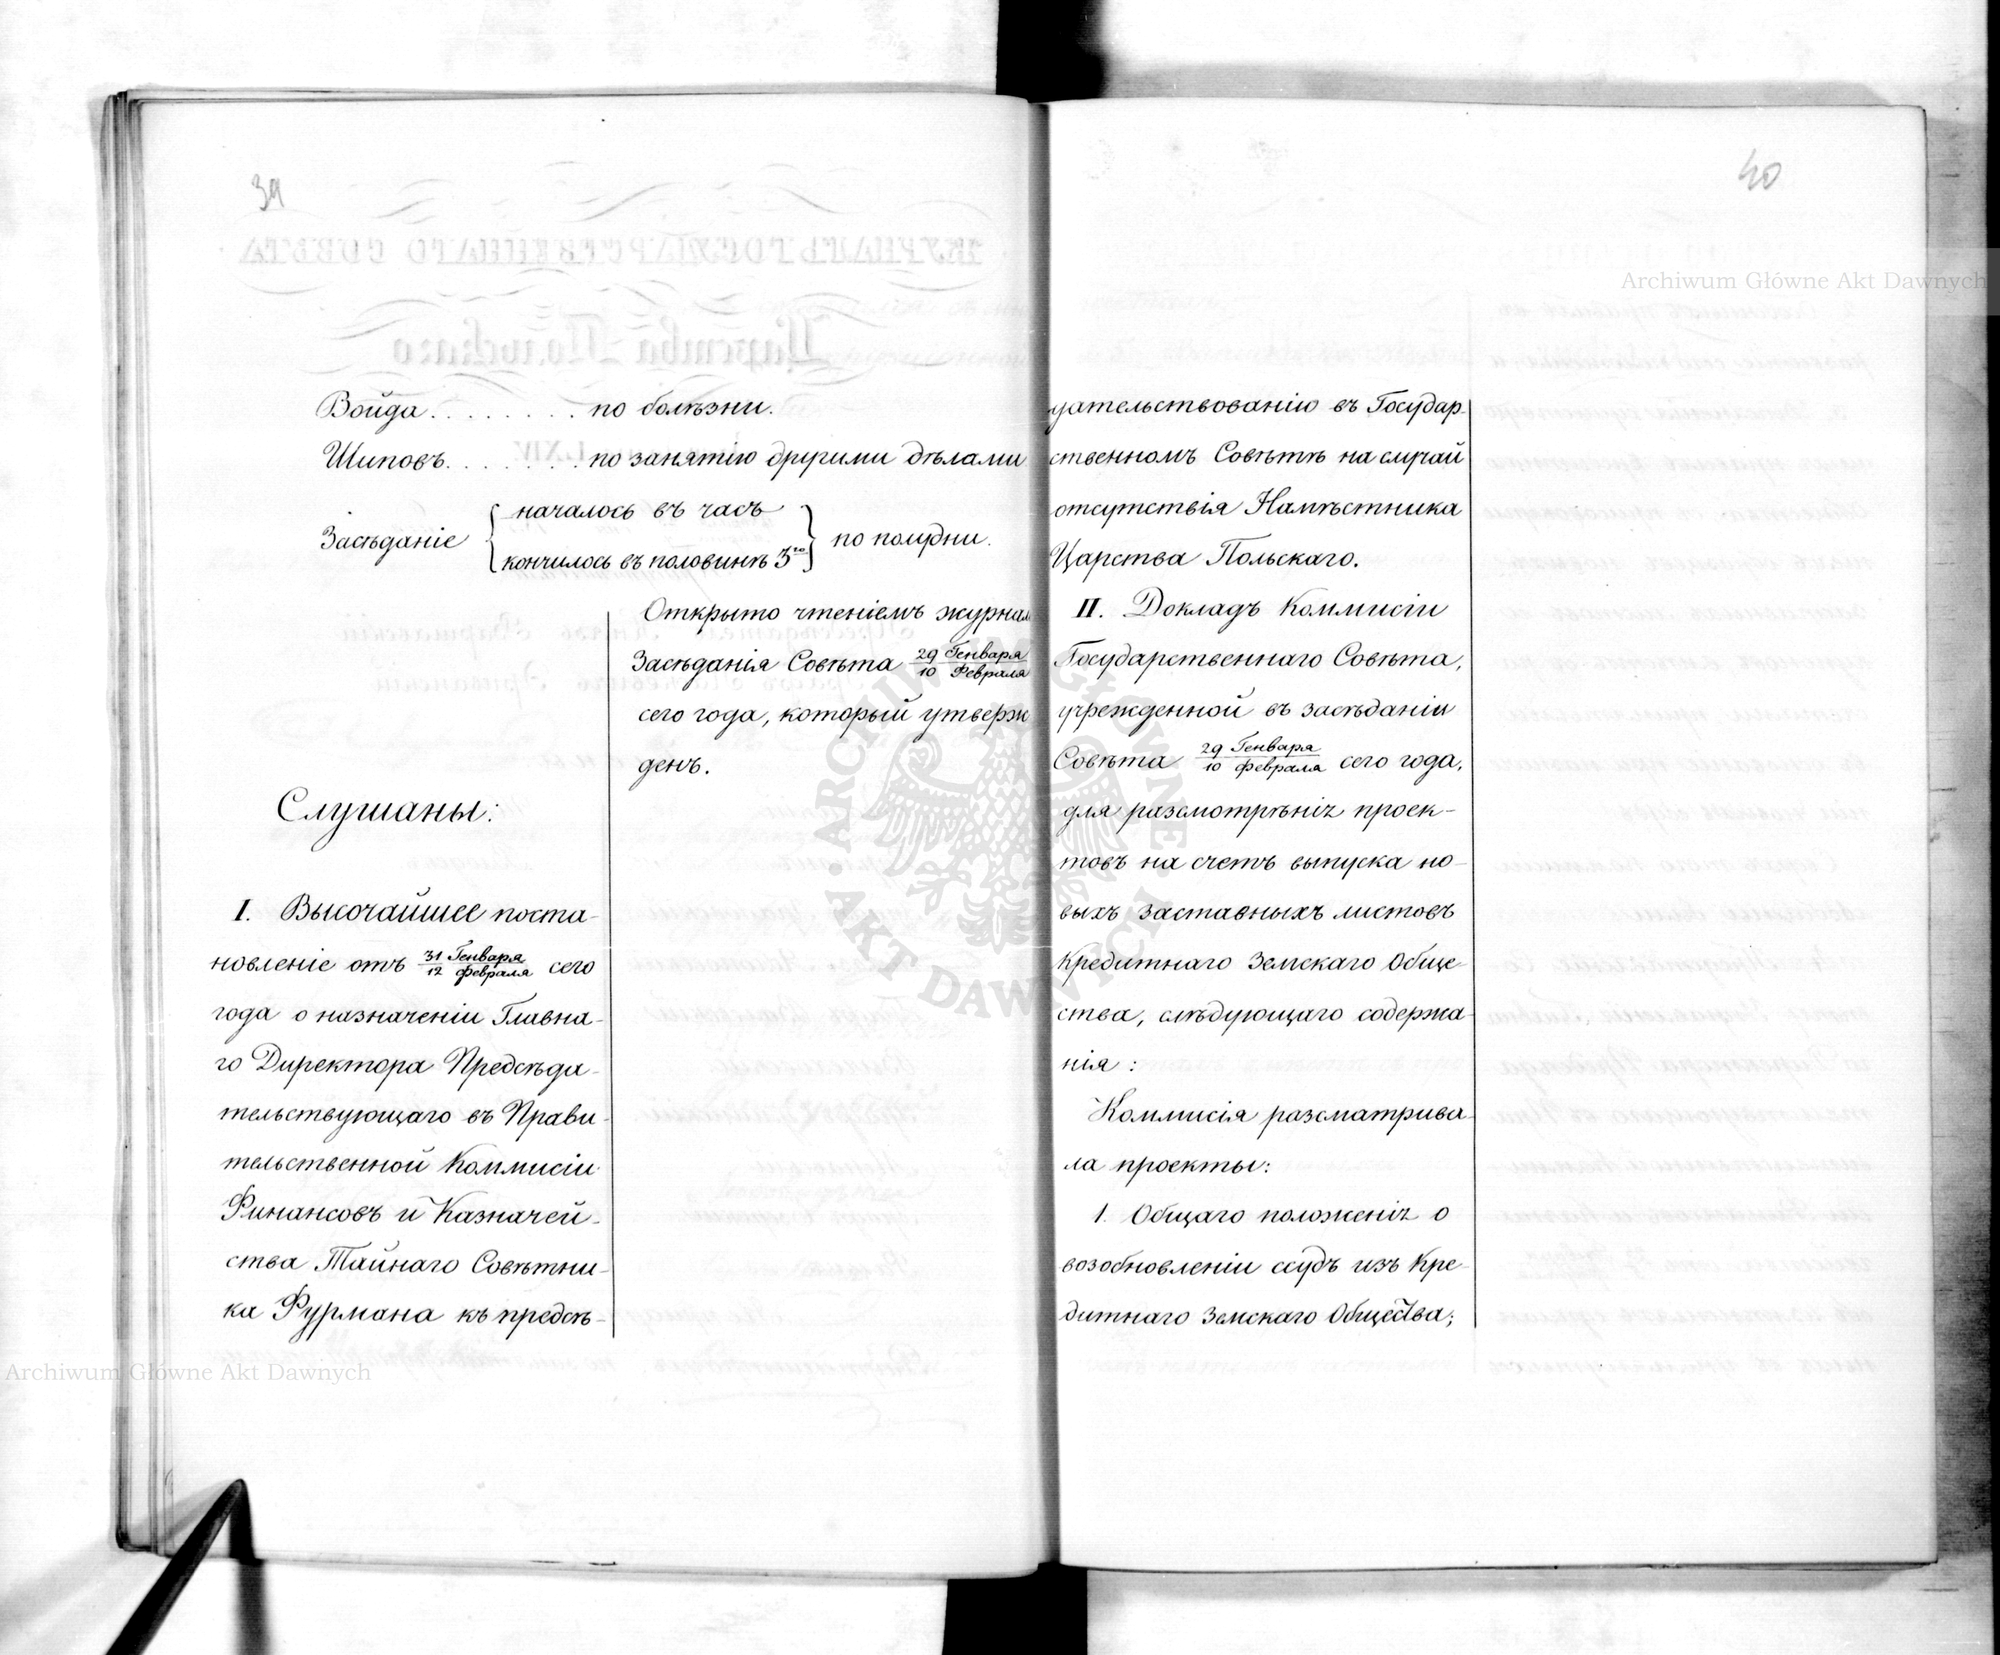 39
Войда . . . . . . . . по болѣзни.
Шиповъ. . . . . . . . по занятію другими дѣлами
Засѣданіе { началось въ часъ
кончилось въ половинѣ 3го } по полудни.
Открыто чтеніемъ журнал
Засѣданія Совѣта 29 Генваря / 10 Февраля
сего года, который утверж
денъ.
Слушаны:
I. Высочайшее поста-
новленіе отъ 31 Генваря / 12 февраля сего
года о назначеніи Главна-
го Директора Предсѣда-
тельствующаго въ Прави-
тельственной Коммисіи
Финансовъ и Казначей-
ства Тайнаго Совѣтни-
ка Фурмана къ предсѣ-
40
дательствованію въ Государ-
ственномъ Совѣтѣ на случай
отсутствія Намѣстника
Царства Польскаго.
II. Докладъ Коммисіи
Государственнаго Совѣта,
учрежденной въ засѣданіи
Совѣта 29 Генваря / 10 февраля сего года,
для разсмотрѣнія проек-
товъ на счетъ выпуска но-
выхъ заставныхъ листовъ
Кредитнаго Земскаго Обще-
ства, слѣдующаго содержа-
нія:
Коммисія разсматрива-
ла проекты:
1. Общаго положенія о
возобновленіи ссудъ изъ Кре-
дитнаго Земскаго Общества;
Archiwum Główne Akt Dawnych
Archiwum Główne Akt Dawnych
ARCHIWUM GŁÓWNE AKT DAWNYCH